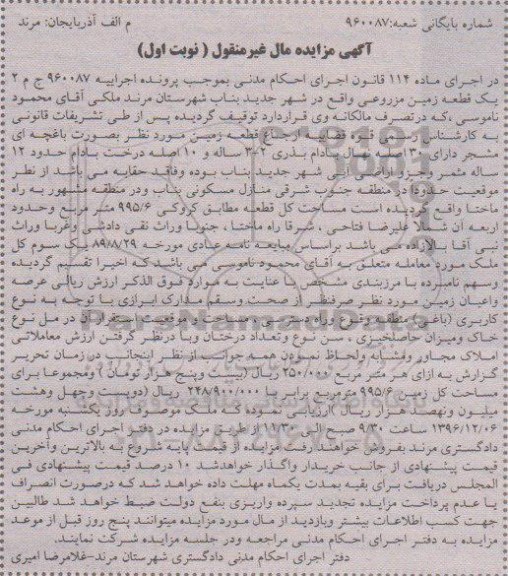 شماره بایگانی شعبه: ۹۶۰۰۸۷ م الف آذربایجان: مرند
آگهی مزایده مال غیرمنقول ( نوبت اول)
در اجرای ماده ۱۱۴ قانون اجرای احکام مدنی بموجب پرونده اجراییه ۹۶۰۰۸۷ ج م ۲
یک قطعه زمین مزروعی واقع در شهر جدید بناب شهرستان مرند ملکی آقای محمود
ناموسی ،که در تصرف مالکانه وی قراردارد توقیف گردیده پس از طی تشریفات قانونی
به کارشناس رسمی قوه قضاییه ارجاع قطعه زمین مورد نظر بصورت باغچه ای
مشجر دارای ۱۳ اصله نهال بادام بذری ۲-۳ ساله و ۱۰ اصله درخت بادام حدود ۱۲
ساله مثمر وجزو اراضی شهر جدید بناب بوده وفاقد حقابه می باشد از نظر
موقعیت حدودا در منطقه جنوب شرقی منازل مسکونی بناب ودر منطقه مشهور به راه
ماخنا واقع گردیده است مساحت کل قطعه مطابق کروکی ۹۹۵/۶ متر مربع وحدود
اربعه آن شمالا علیرضا فتاحی ، شرقا راه ماخنا ، جنوبا وراث تقی دادشی وغربا وراث
نبی آقا بالازاده می باشد براساس مبایعه نامه عادی مورخه ۸۹/۸/۲۹ یک سوم کل
ملک مورد معامله متعلق به آقای محمود ناموسی می باشد که اخیرا تقسیم گردیده
وسهم نامبرده با مرزبندی مشخص با عنایت به موارد فوق الذکر ارزش ریالی عرصه
واعیان زمین مورد نظر صرفنظر از صحت وسقم مدارک ابرازی با توجه به نوع
کاربری (باغی) منطقه شرع وراه دسترسی مساحت موقعیت استقرار آن در مل نوع
خاک ومیزان حاصلخیزی ، سن نوع وتعداد درختان وبا درنظر گرفتن ارزش معاملاتی
املاک مجاور ومشابه ولحاظ نمودن همه جوانب از نظر اینجانب در زمان تحریر
گزارش به ازای هر متر مربع ۲۵۰/۰۰۰ ریال (بیست وپنج هزار تومان) ومجموعا برای
مساحت کل زمین ۹۹۵/۶ مترمربع برابر با ۲۴۸/۹۰۰/۰۰۰ ریال (دویست وچهل وهشت
میلیون ونهصد هزار ریال) ارزیابی نموده که ملک موصوف روز یکشنبه مورخه
۱۳۹۶/۱۲/۰۶ ساعت ۹/۳۰ صبح الی ۱۱/۳۰ از طریق مزایده در دفتر اجرای احکام مدنی
دادگستری مرند بفروش خواهند رفت مزایده از قیمت پایه شروع به بالاترین وآخرین
قیمت پیشنهادی از جانب خریدار واگذار خواهدشد ۱۰ درصد قیمت پیشنهادی فی
المجلس دریافت برای بقیه بمدت یکماه مهلت داده خواهد شد که درصورت انصراف
یا عدم پرداخت مزایده تجدید سپرده واریزی بنفع دولت ضبط خواهد شد طالبین
جهت کسب اطلاعات بیشتر وبازدید از مال مورد مزایده میتوانند پنج روز قبل از موعد
مزایده به دفتر اجرای احکام مدنی مراجعه ودر جلسه مزایده شرکت نمایند.
دفتر اجرای احکام مدنی دادگستری شهرستان مرند-غلامرضا امیری
ParsNamadData